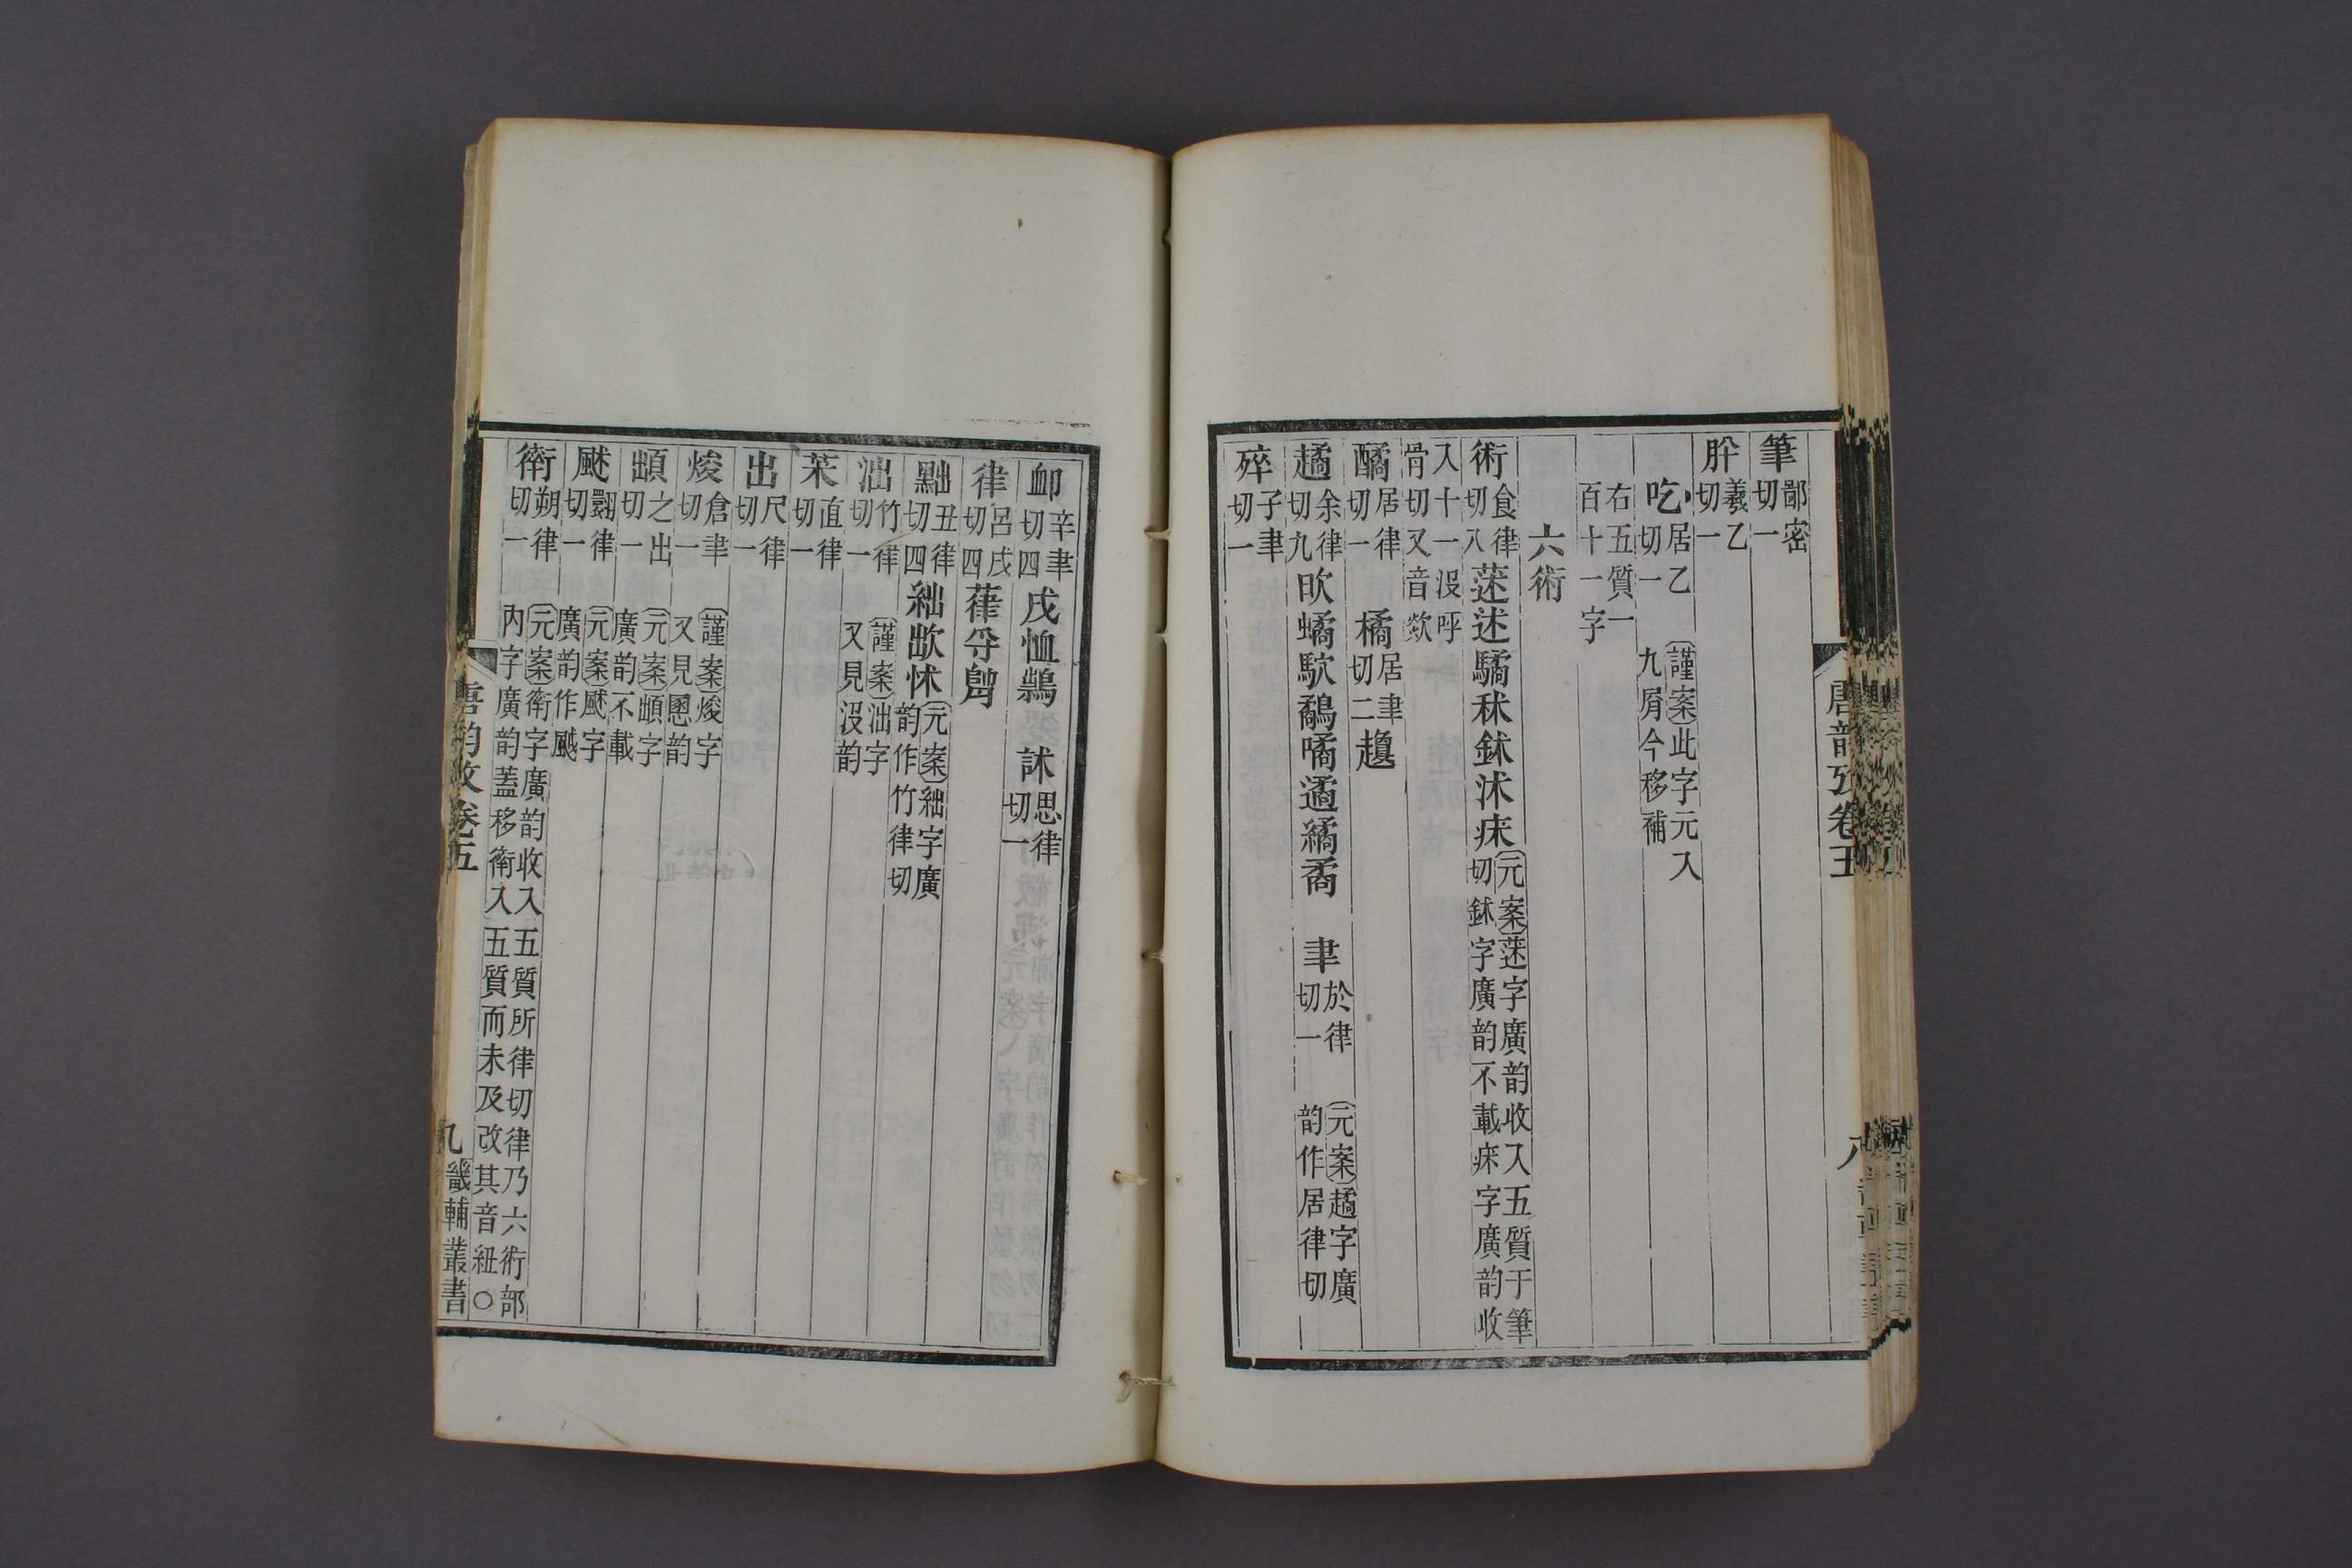 筆鄙密切一
肸羲乙切一
吃居乙切一 謹案此字元入九屑今移補
右五質一百十一字
六術
術食律切八 蒁述驈秫鉥沭㾁 元案蒁字廣韵收入五質于筆切鉥字廣韵不載㾁字廣韵收
入十一沒呼骨切又音欻
醨居律切一 橘居聿切二 趫
趫余律切九 欥蟠驈鷸噊遹繘矞 聿於律切一 元案趫字廣韵作居律切
卒子聿切一
唐韵攷卷五
八
卹辛聿切四 戌恤鷞 訹思律切一
律呂戌切四 葎寽膟
黜丑律切四 絀欪怵 元案絀字廣韵作竹律切
泏竹律切一 謹案泏字又見沒韵
茮直律切一
出尺律切一
焌倉聿切一 謹案焌字又見慁韵
䪼之出切一 元案䪼字廣韵不載
颰翾律切一 元案颰字廣韵作颰
䘗朔律切一 元案䘗字廣韵收入五質所律切律乃六術部內字廣韵蓋移䘗入五質而未及改其音紐○
唐韵攷卷五
九
畿輔叢書